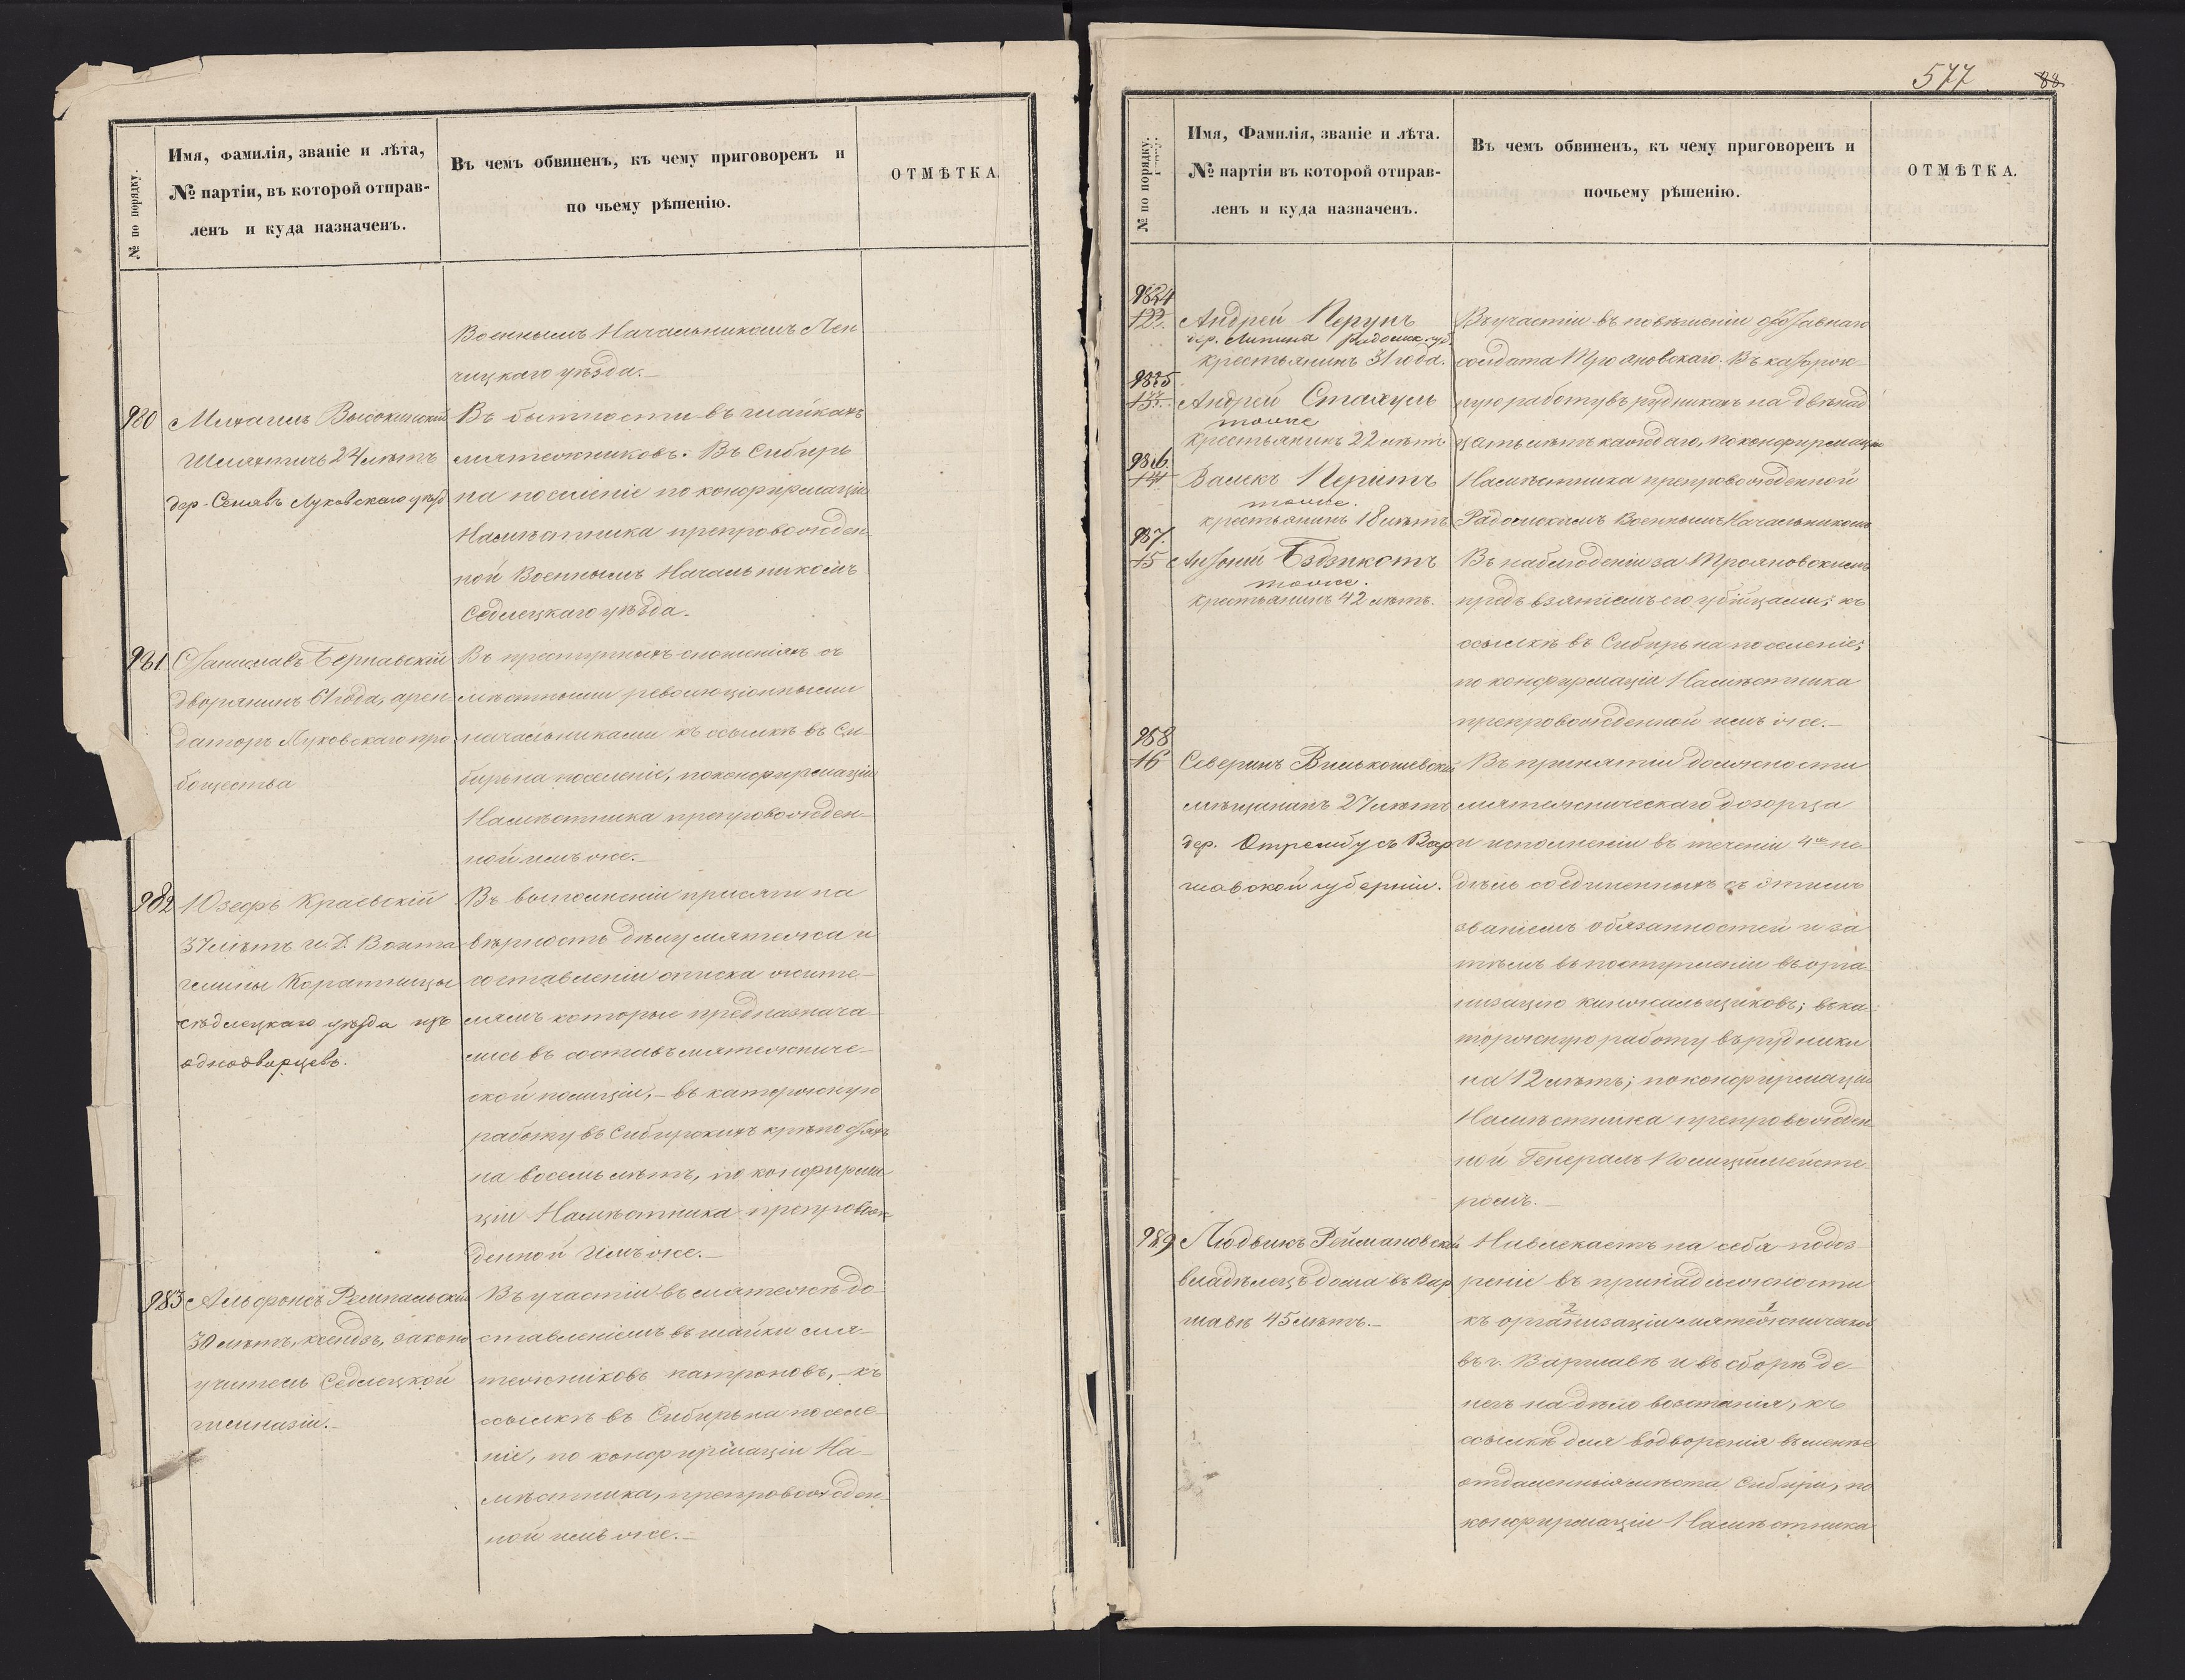 № по порядку.
Имя, Фамилія, званіе и лѣта,
№ партіи, въ которой отправ-
ленъ и куда назначенъ.
Въ чемъ обвиненъ, къ чему приговоренъ и
по чьему рѣшенію.
ОТМѢТКА.
Военнымъ Начальникомъ Лен
чицкаго уѣзда.—
980 Михаилъ Высокинскій
Шляхтичъ 24 лѣтъ
дер. Сенявъ Луковскаго уѣзд.
Въ бытности въ шайкахъ
мятежниковъ. Въ Сибирь
на поселеніе по конфирмаціи
Намѣстника препровожден
ной Военнымъ Начальникомъ
Седлецкаго уѣзда.
981 Станиславъ Бернавскій
дворянинъ 61 года, арен
даторъ Луковскаго про
бощества
Въ преступныхъ сношеніяхъ съ
мѣстными революціонными
начальниками къ ссылкѣ въ Си-
бирь на поселеніе, по конфирмаціи
Намѣстника препровожден-
ной имъ же.—
982 Юзефъ Краевскій
37 лѣтъ и. д. Войта
гмины Коратницы
Сѣдлецкаго уѣзда изъ
однодворцевъ.
Въ выполненіи присяги на
вѣрность дѣлу мятежа и
составленіи списка жите-
лямъ которые предназнача-
лись въ составъ мятежниче-
ской полиціи,— въ каторжную
работу въ Сибирскихъ крѣпостяхъ
на восемь лѣтъ, по конфирма
ціи Намѣстника препровож
денной Имъ же.—
983 Альфонсъ Ремпальскій
30 лѣтъ, ксендзъ, законо
учитель Седлецкой
гимназіи.—
Въ участіи въ мятежѣ до-
ставленіемъ въ шайки мя-
тежниковъ патроновъ,— къ
ссылкѣ въ Сибирь на поселе-
ніе, по конфирмаціи На-
мѣстника, препровожден-
ной имъ же.—
577 88.
№ по порядку.
Имя, Фамилія, званіе и лѣта.
№ партіи въ которой отправ-
ленъ и куда назначенъ.
Въ чемъ обвиненъ, къ чему приговоренъ и
почьему рѣшенію.
ОТМѢТКА.
984
Андрей Перунъ
дер. Липины Радомск. уѣз.
крестьянинъ 31 года.
985
Андрей Стахуль
тоже
крестьянинъ 22 лѣтъ
986.
14 Валекъ Перитъ
тоже.
крестьянинъ 18 лѣтъ
987.
15 Антоній Бздзикотъ
тоже.
крестьянинъ 42 лѣтъ.
Въ участіи въ повѣшеніи отставнаго
солдата Трояновскаго. Въ каторж-
ную работу въ рудникахъ на двѣнад
цать лѣтъ каждаго, по конфирмаціи
Намѣстника препровожденной
Радомскимъ Военнымъ Начальникомъ
Въ наблюденіи за Трояновскимъ
предъ взятіемъ его убійцами; къ
ссылкѣ въ Сибирь на поселеніе;
по конфирмаціи Намѣстника
препровожденной имъ же.—
988
16 Северинъ Вилькошевскій
мѣщанинъ 27 лѣтъ
дер. Отрембусъ Вар
шавской губерніи.
Въ принятіи должности
мятежническаго дозорца
и исполненіи въ теченіи 4хъ не
дѣль соединенныхъ съ этимъ
званіемъ обязанностей и за
тѣмъ въ поступленіи въ орга
низацію кинжальщиковъ; въ ка-
торжную работу въ рудники
на 12 лѣтъ; по конфирмаціи
Намѣстника препровожден
ной Генералъ Полицмейсте
ромъ.—
989 Людвикъ Реймановскій
владѣлецъ дома въ Вар
шавѣ 45 лѣтъ.—
Навлекаетъ на себя подоз
реніе въ принадлежности
къ организаціи мятежнической
въ г. Варшавѣ и въ сборѣ де-
негъ на дѣло возстанія, къ
ссылкѣ для водворенія въ менѣе
отдаленныя мѣста Сибири, по
конфирмаціи Намѣстника